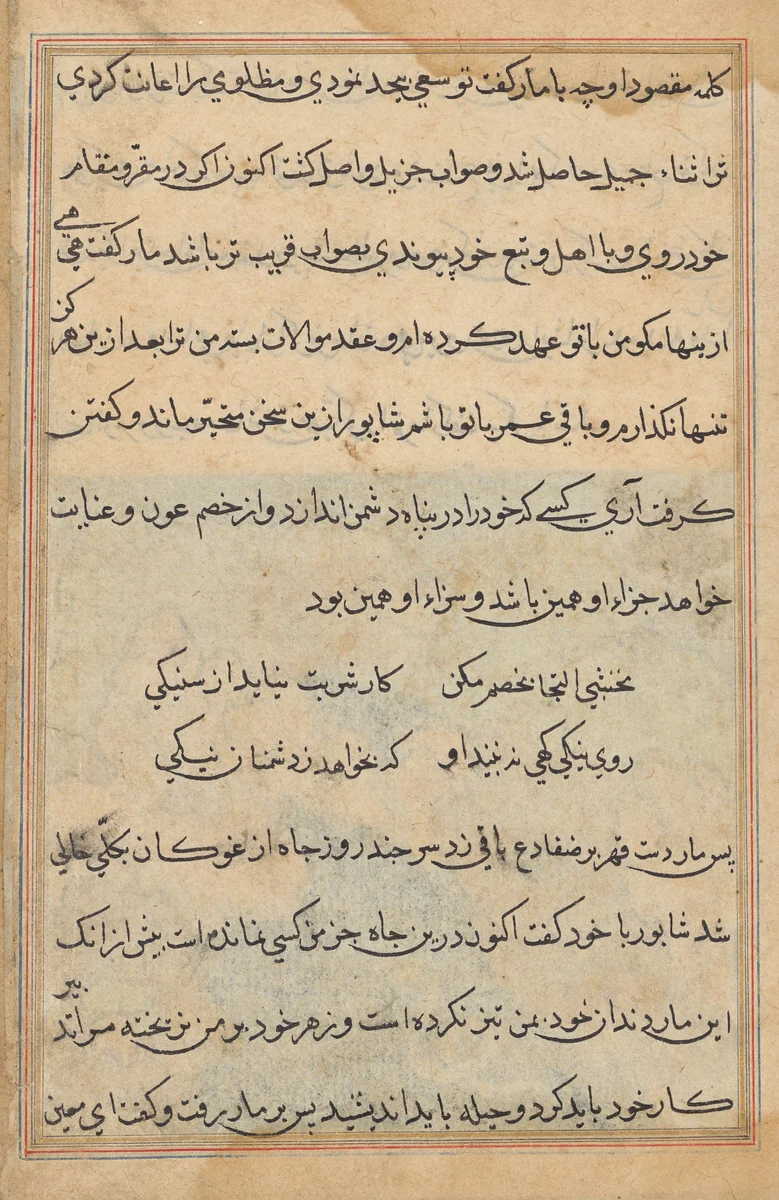 كلمه مقصود او چه با مار كفت تو سعي بيحد نمودي و مظلومي را اعانت كردي
ترا ثناء جميل حاصل شد و صواب جزيل واصل كشت اكنون اكر در مقرّ و مقام
خود روي و با اهل و تبع خود پيوندي بصواب قريب تر باشد مار كفت هي هي
ازينها مكو من با تو عهد كرده ام و عقد موالات بسته من ترا بعد ازين هركز
تنها نكذارم و باقي عمر با تو باشم شاپور ازين سخن متحيّر ماند و كفتن
كرفت آري كسي كه خود را در پناه دشمن اندازد و از خصم عون و عنايت
خواهد جزاء او همين باشد و سزاء او همين بود
نخشبي التجا بخصم مكن كار شربت نيايد از سنيكي
روي نيكي كهي نه بيند او كه بخواهد ز دشمنان نيكي
پس مار دست قهر بر ضفادع باقي زد سر چند روز جاه از غوكان بكلّي خالي
شد شابور با خود كفت اكنون درين جاه جز من كسي نمانده است بيش از انك
اين مار دندان خود بمن تيز نكرده است و زهر خود بر من نريخته مرا تدبير
كار خود بايد كرد و حيله بايد انديشيد پس بر مار رفت و كفت اي معين